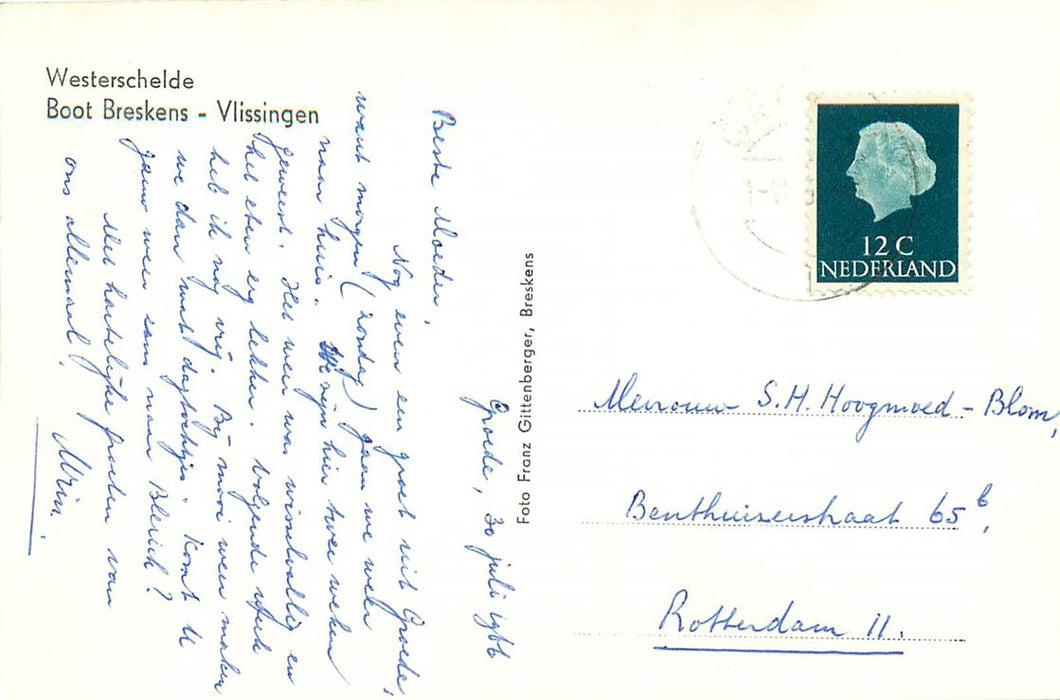 Westerschelde
Boot Breskens - Vlissingen
Groede, 30 juli 1966
Beste Moeder,
Nog even een groet uit Groede,
want morgen (zondag) gaan we weer
naar huis. We zijn hier twee weken
geweest. Het weer was wisselvallig en
het eten erg lekker. Volgende week
heb ik nog vrij. Bij mooi weer maken
we dan wat dagtochtjes. Komt U
gauw weer eens naar Blerick?
Met hartelijke groeten van
ons allemaal.
Wim.
Foto Franz Gittenberger, Breskens
12 C
NEDERLAND
Mevrouw S.H. Hoogmoed - Blom,
Benthuizerstraat 65 b,
Rotterdam 11.